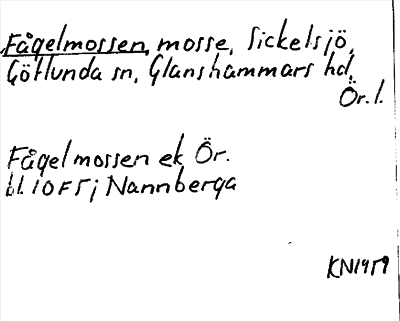 Fågelmossen, mosse, Sickelsjö,
Götlunda sn, Glanshammars hd,
Ör. l.
Fågelmossen ek Ör.
bl. 10F5j Nannberga
KN1959